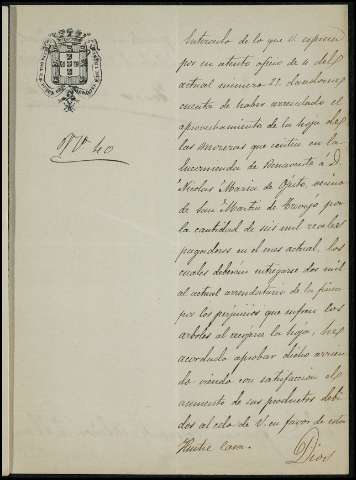 Nº 40
Enterado de lo que V. espresa
por su atento oficio de 4 del
actual numero 27. dandome
cuenta de haber arrendado el
aprovechamiento de la hoja de
las moreras que existen en la
Encomienda de Benavente á D.
Nicolas Maria de Ojesto, vecino
de San Martin de Trevejo por
la cantidad de seis mil reales
pagaderos en el mes actual, los
cuales deberán entregarse dos mil
al actual arrendatario de la finca
por los perjuicios que sufren los
arboles al cogerse la hoja, he
acordado aprobar dicho arrien
do viendo con satisfaccion el
aumento de sus productos debi
dos al celo de V. en favor de esta
Ilustre Casa.
Dios